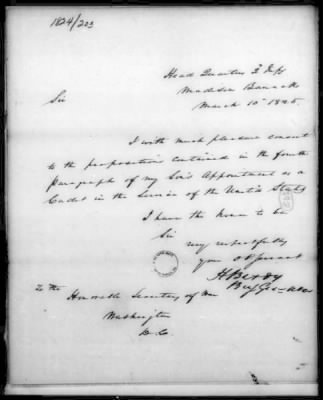 1824/203
Head Quarters 2 Inf
Madison Barracks
March 10th 1825.
Sir
I with much pleasure consent
to the proposition contained in the fourth
Paragraph of my Son's Appointment as a
Cadet in the Service of the United States
I have the honor to be
Sir
very respectfully
your ob Servant
H Brady
Brig Gen
To the
Honorable Secretary of War
Washington
D. C.